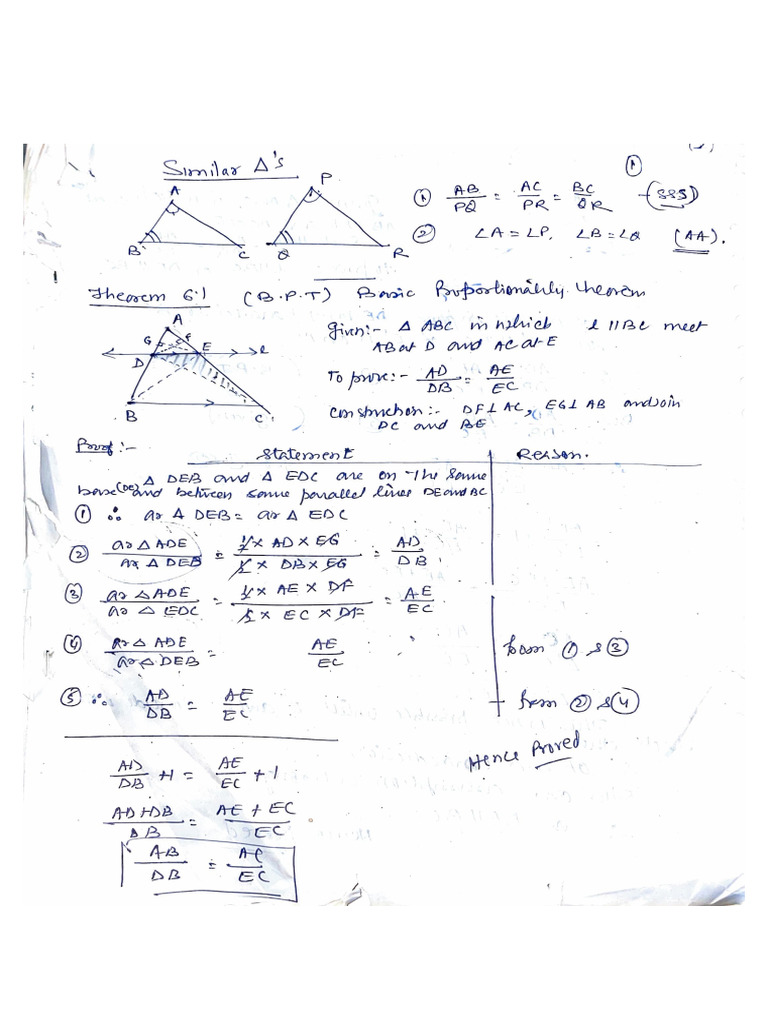 ①
Similar Δ's
A
B
C
P
Q
R
① AB/PQ = AC/PR = BC/QR (SSS)
② ∠A = ∠P, ∠B = ∠Q (AA).
Theorem 6.1 (B.P.T) Basic Proportionality theorem
A
G
F
D
E
l
B
C
Given:- Δ ABC in which l || BC meet
AB at D and AC at E
To prove:- AD/DB = AE/EC
Construction:- DF ⊥ AC, EG ⊥ AB and join
DC and BE
Proof:-
Statement Reason.
Δ DEB and Δ EDC are on the same
base (DE) and between same parallel lines DE and BC
① ∴ ar Δ DEB = ar Δ EDC
② ar Δ ADE / ar Δ DEB = ½ × AD × EG / ½ × DB × EG = AD/DB
③ ar Δ ADE / ar Δ EDC = ½ × AE × DF / ½ × EC × DF = AE/EC
④ ar Δ ADE / ar Δ DEB = AE/EC from ① & ③
⑤ ∴ AD/DB = AE/EC from ② & ④
Hence Proved
AD/DB + 1 = AE/EC + 1
AD+DB/DB = AE + EC/EC
AB/DB = AC/EC